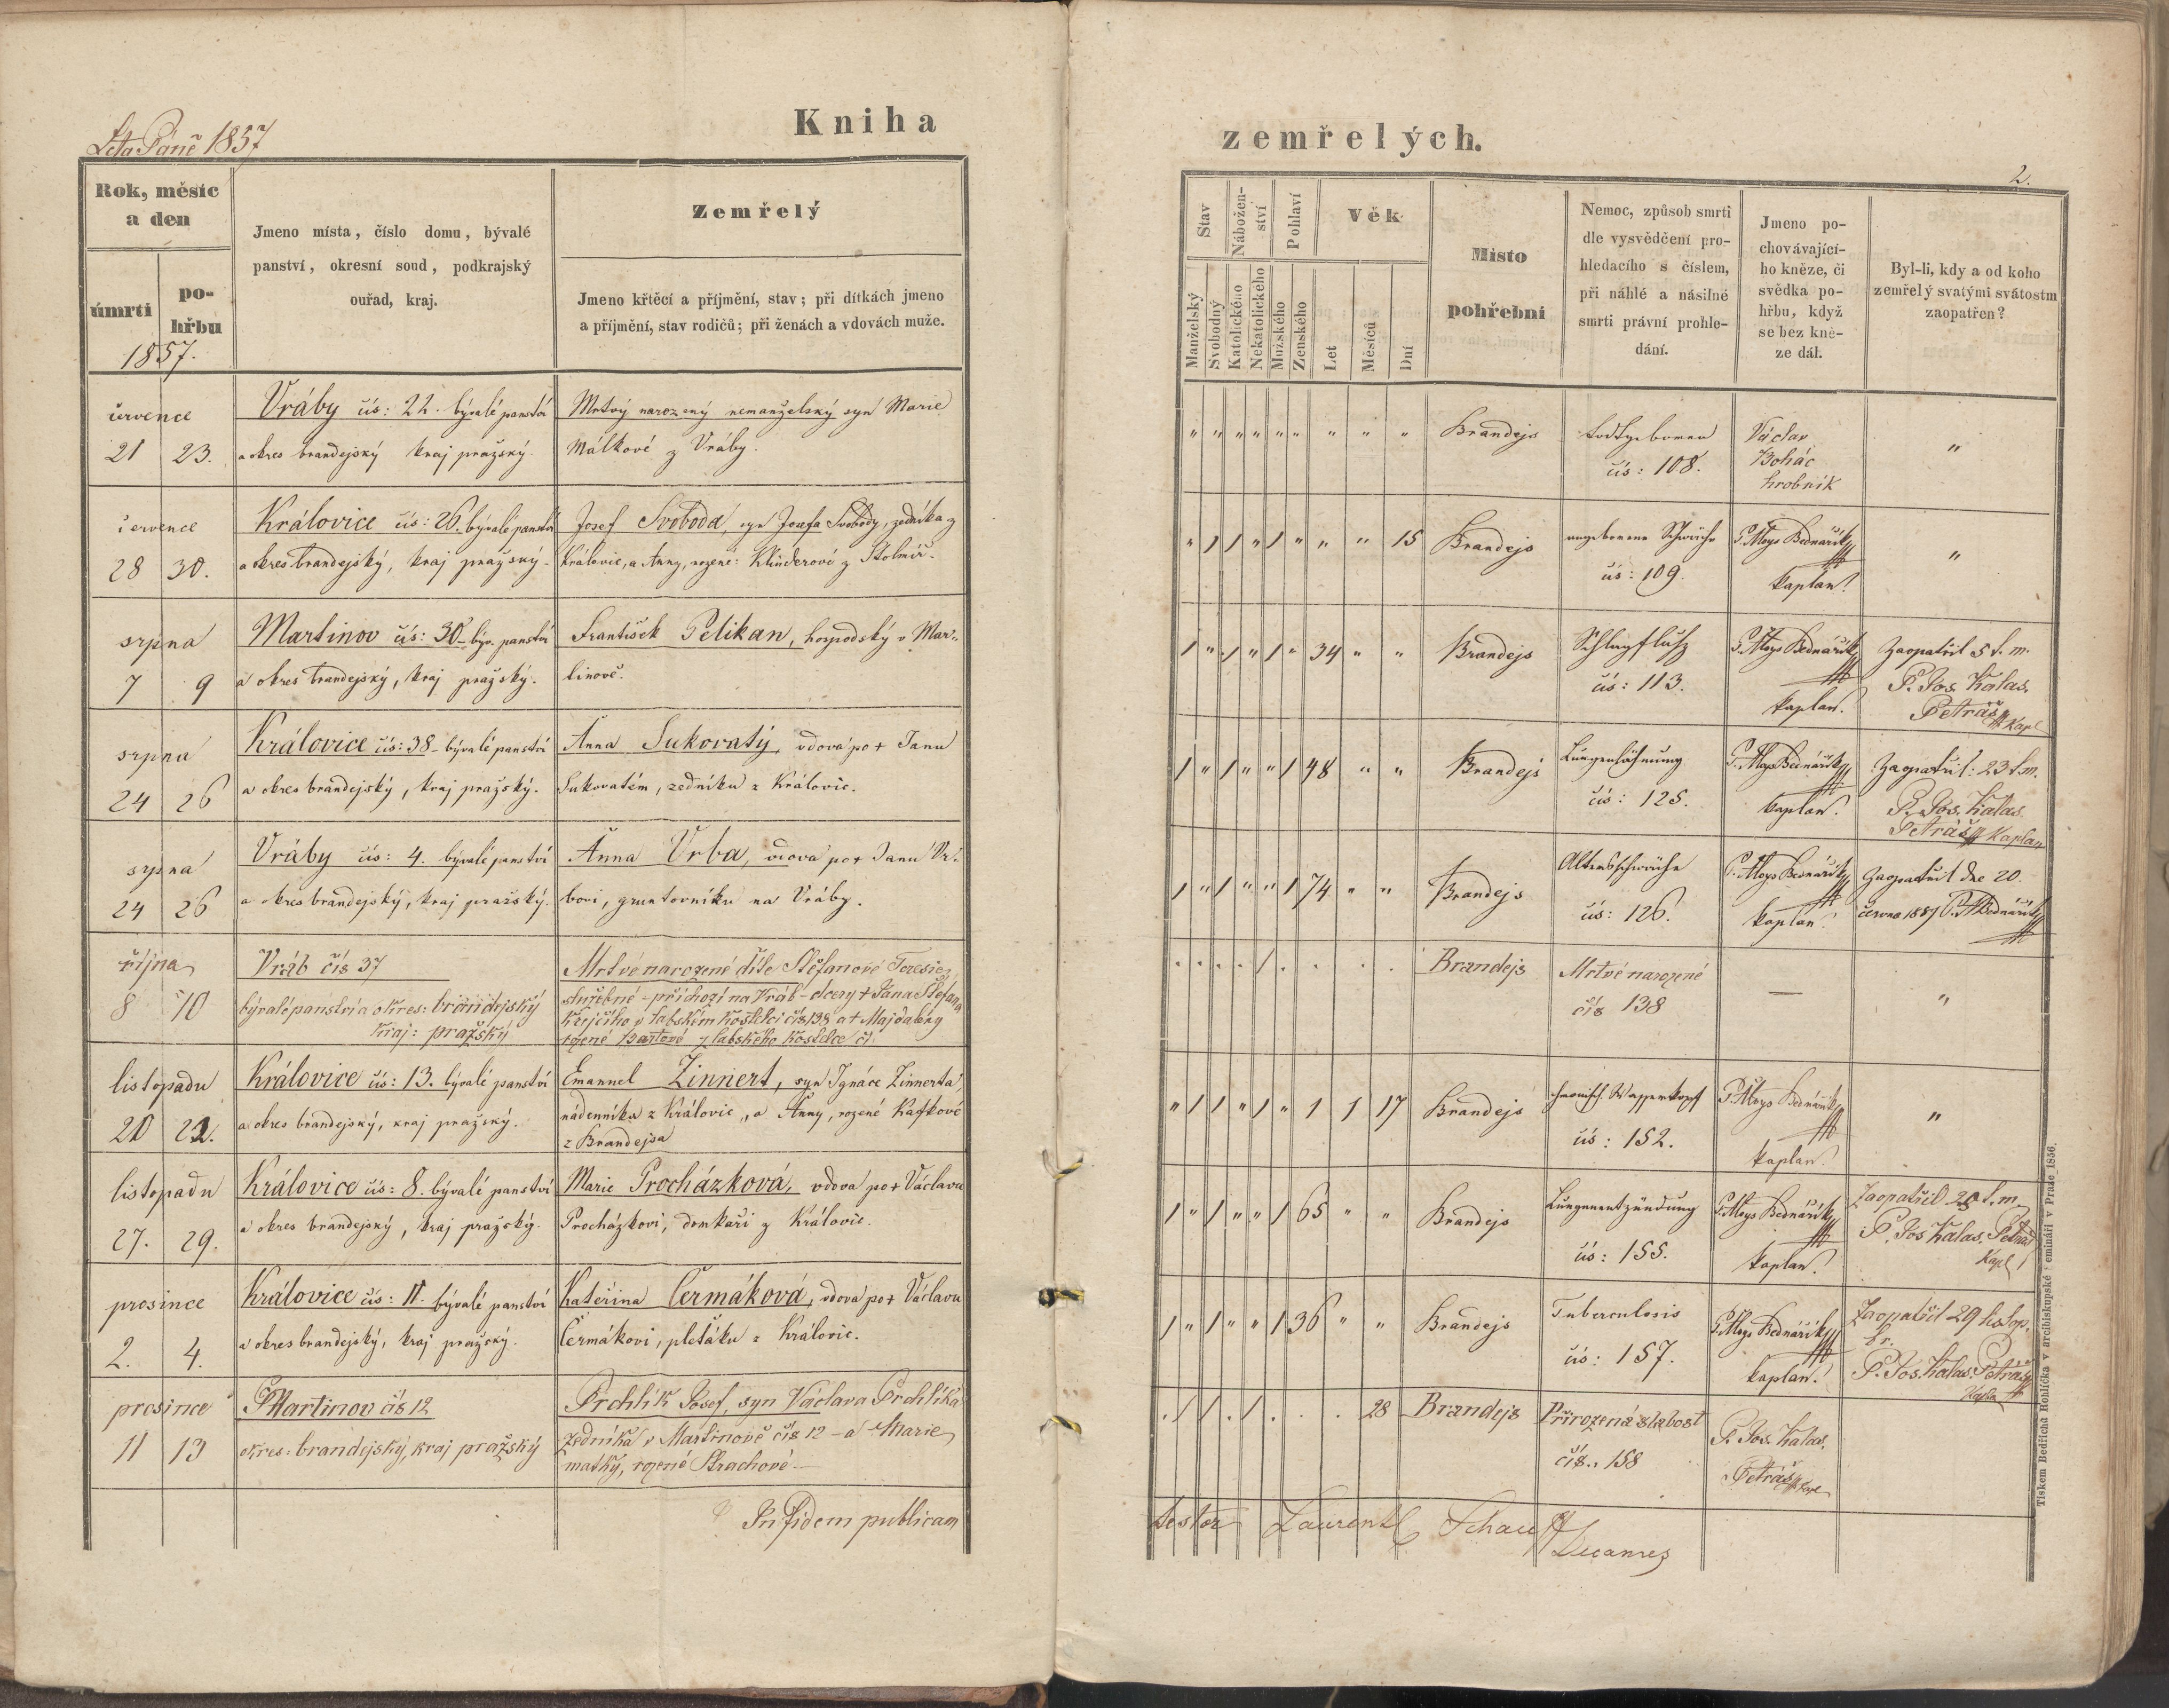 Kniha
Leta Páně 1857
Rok, měsíc
a den
úmrti
po-
hřbu
1857.
Jmeno místa, číslo domu, bývalé
panství, okresní soud, podkrajský
ouřad, kraj.
Zemřelý
Jmeno křtěcí a příjmění, stav; při dítkách jmeno
a příjmění, stav rodičů; při ženách a vdovách muže.
července
21 23.
Vráby čís: 22. bývalé panství
a okres brandejský kraj pražský.
Mrtvý narozený nemanželský syn Marie
Málkové z Vráby.
července
28 30.
Královice čís: 26. bývalé panství
a okres brandejský, kraj pražský.
Josef Svoboda, syn Josefa Svobody, zedníka z
Královic, a Anny, rozené: Klinderové z
srpna
7 9
Martinov čís: 30 býv. panství
a okres brandejský, kraj pražský.
František Pelikan, hospodský v Mar-
tinově.
srpna
24 26
Královice čís: 38 bývalé panství
a okres brandejský, kraj pražský.
Anna Sukovatý, vdova po † Janu
Sukovatém, zedníku z Královic.
srpna
24 26
Vráby čís: 4. bývalé panství
a okres brandejský, kraj pražský.
Anna Vrba, vdova po † Janu Vr-
bovi, gruntovníku na Vráby.
října
8 10
Vráb čís 37
bývalé panství a okres: brandejský
kraj: pražský
Mrtvé narozené díte Štěfanové Teresie,
služebné – příchozí na Vráb – dcery † Jana Štefana
Krejčího v labském Kostelci čís 138 a † Majdaleny
rozené Bartové z labského Kostelce čí.
listopadu
20 22.
Královice čís: 13. bývalé panství
a okres brandejský, kraj pražský.
Emanuel Zinnert, syn Ignáce Zinnerta,
nádenníka z Královic, a Anny, rozené Kafkové
z Brandejsa
listopadu
27. 29.
Královice čís: 8. bývalé panství
a okres brandejský, kraj pražský.
Marie Procházková, vdova po † Václavu
Procházkovi, domkaři z Královic.
prosince
2. 4.
Královice čís: 11. bývalé panství
a okres brandejský, kraj pražský.
Kateřina Čermáková, vdova po † Václavu
Čermákovi, pleťáku z Královic.
prosince
11 13
Martinov čís 12
okres: brandejský, kraj pražský
Prchlík Josef, syn Václava Prchlíka
zedníka v Martinově čís 12 – a Marie
matky, rozené Strachové. –
In fidem publicam
zemřelých.
2.
Stav
Nábožen-
ství
Pohlaví
Věk
Manželský
Svobodný
Katolického
Nekatolického
Mužského
Zenského
Let
Měsíců
Dní
Místo
pohřební
Nemoc, způsob smrti
dle vysvědčení pro-
hledacího s číslem,
při náhlé a násilné
smrti právní prohle-
dání.
Jmeno po-
chovávající-
ho kněze, či
svědka po-
hřbu, když
se bez kně-
ze dál.
Byl-li, kdy a od koho
zemřelý svatými svátostmi
zaopatřen?
" " " " " " " " " Brandejs
todtgeboren
čís: 108.
Václav
Boháč
hrobník
"
" / / " / " " " 15 Brandejs
angeborene Schwäche
čís: 109.
P. Aloys Bednářík
kaplan.
"
/ " / " / " 34 " " Brandejs
Schlagfluß
čís: 113.
P. Aloys Bednářík
kaplan.
Zaopatřil 5 t. m.
P. Jos. Kalas.
Petráš Kapl
/ " / " " / 48 " " Brandejs
Lungenlähmung
čís: 125.
P. Aloys Bednářík
kaplan.
Zaopatřil: 23 t. m.
P. Jos. Kalas.
Petráš Kaplan
/ " / " " / 74 " " Brandejs
Altersschwäche
čís: 126.
P. Aloys Bednářík
kaplan.
Zaopatřil dne 20.
června 1857 P. A. Bednářík
. . . . / . . . . Brandejs
Mrtvé narozené
čís 138
—
"
" / / " / " 1 1 17 Brandejs
chronisch. Wasserkopf
čís: 152.
P. Aloys Bednářík
kaplan.
"
/ " / " " / 65 " " Brandejs
Lungenentzündung
čís: 155.
P. Aloys Bednářík
kaplan.
Zaopatřil 28 t. m.
P. Jos Kalas. Petráš
Kapl
/ " / " " / 36 " " Brandejs
Tuberculosis
čís: 157.
P. Aloys Bednářík
kaplan.
Zaopatřil 29 listop.
P. Jos. Kalas. Petráš
Kapla
. / / . / . . . 28 Brandejs
Přirozená slabost
čís.. 158
P. Jos. Kalas.
Petráš Kapl
testor Laurent Schauff
Decanus
Tiskem Bedřicha Rohlíčka v arcibiskupské seminář v Praze 1856.